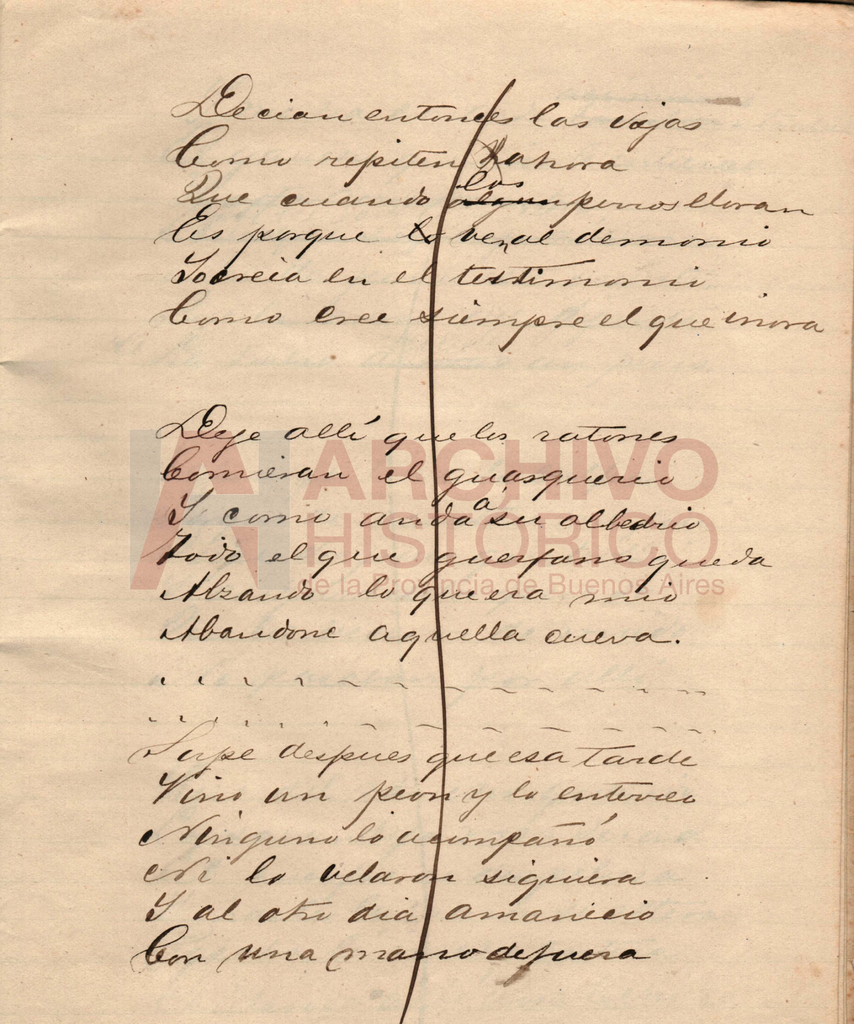 Decian entonces las viejas
Como repiten ahora
Que cuando algun los perros lloran
Es porque lo ven al demonio
Yo creia en el testimonio
Como cree siempre el que inora
Deje allí que los ratones
Comieran el guasquerio
Y como anda á su albedrio
Todo el que guerfano queda
Alzando lo que era mio
Abandone aquella cueva.
Supe despues que esa tarde
Vino un peon y lo enterró
Ninguno lo acompañó
Ni lo velaron siquiera
Y al otro dia amanecio
Con una mano defuera
ARCHIVO
HISTÓRICO
de la Provincia de Buenos Aires